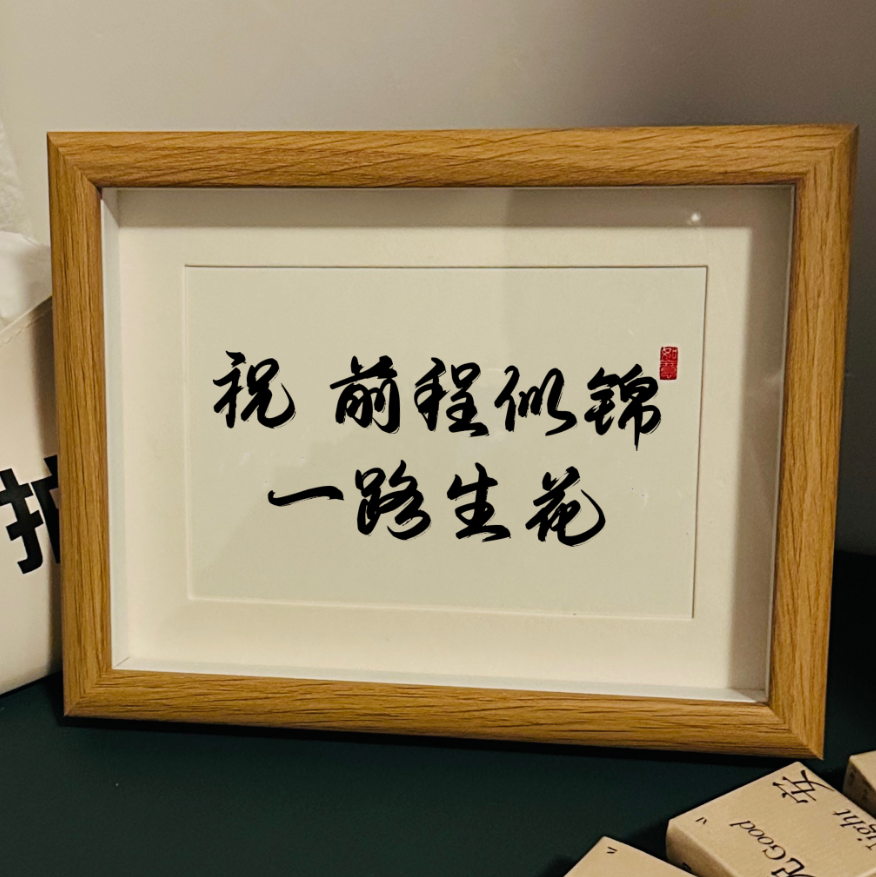 祝 前程似锦
一路生花
安
Good
light